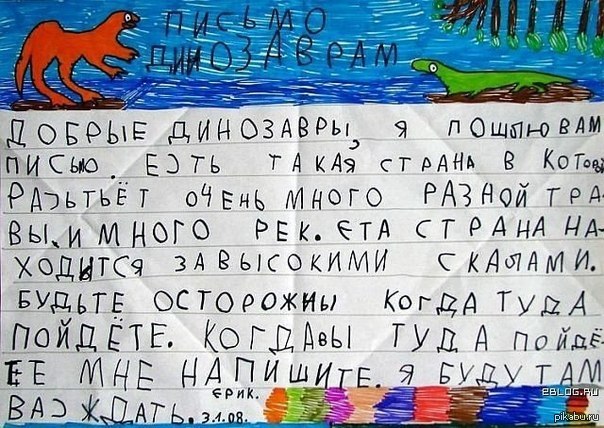 ПИСЬМО
ДИНОЗАВРАМ
ДОБРЫЕ ДИНОЗАВРЫ, Я ПОШЛЮ ВАМ
ПИСЬМО. ЕЗТЬ ТАКАЯ СТРАНА В КОТОРО
РАЗЬТЬЁТ ОЧЕНЬ МНОГО РАЗНОЙ ТРА-
ВЫ, И МНОГО РЕК. ЄТА СТРАНА НА-
ХОДИТСЯ ЗА ВЫСОКИМИ СКАЛАМИ.
БУДЬТЕ ОСТОРОЖНЫ КОГДА ТУДА
ПОЙДЁТЕ. КОГДАВЫ ТУДА ПОЙДЁ-
ТЕ МНЕ НАПИШИТЕ. Я БУДУ ТАМ
ВАЗ ЖДАТЬ.
ЄРИК.
3.1.08.
2BLOG.RU
pikabu.ru